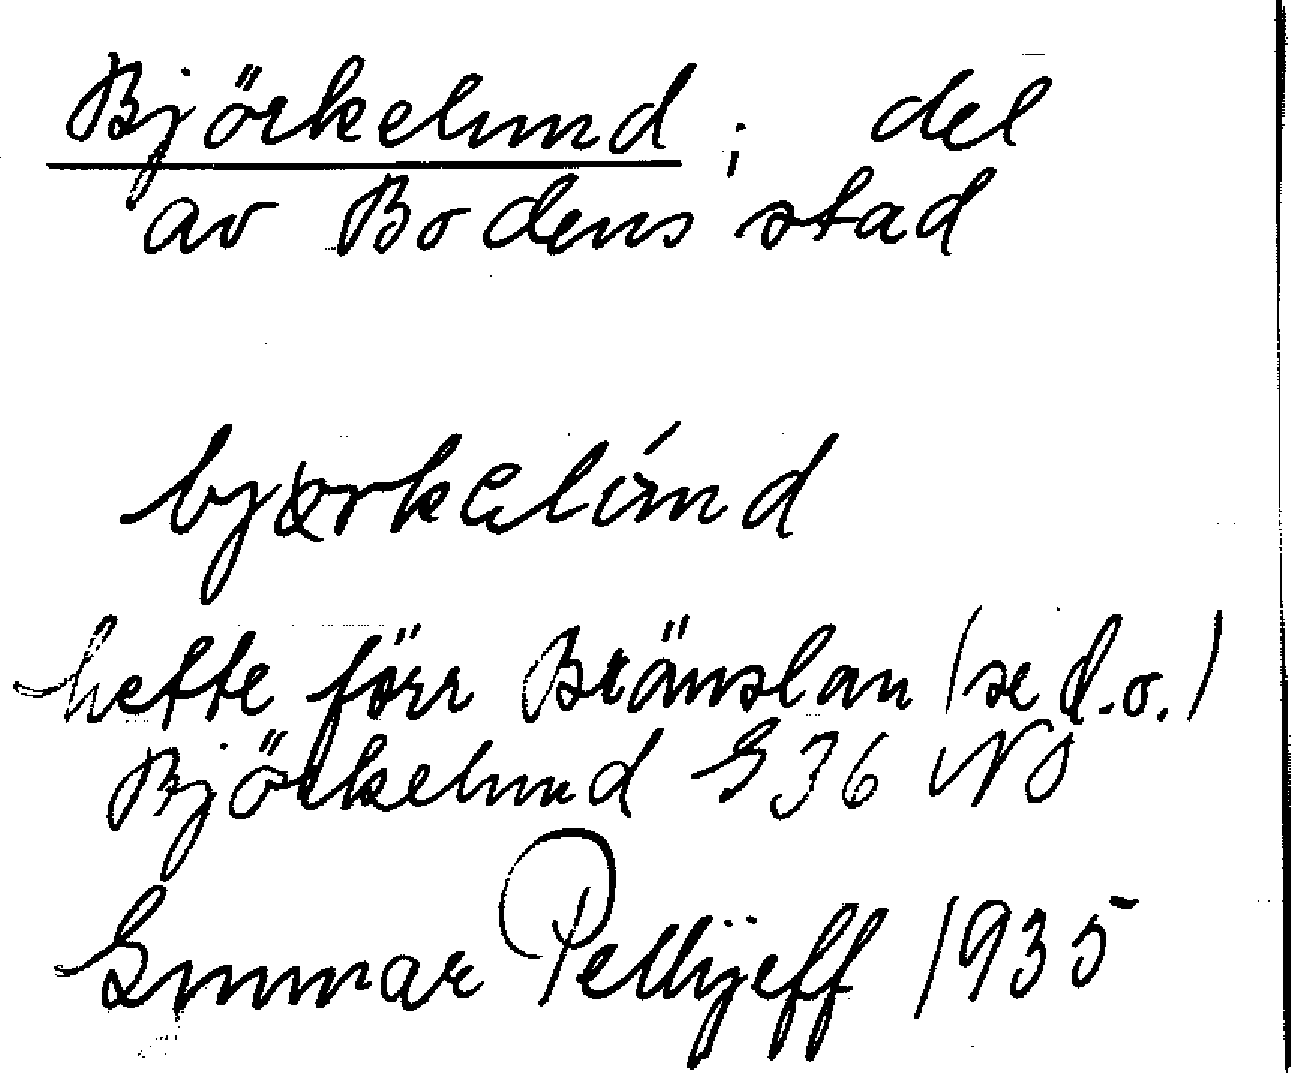 Björkelund; del
av Bodens stad
hette förr Bränslan (se d.o.)
Björkelund G36 NO
Gunnar Pellijeff 1935